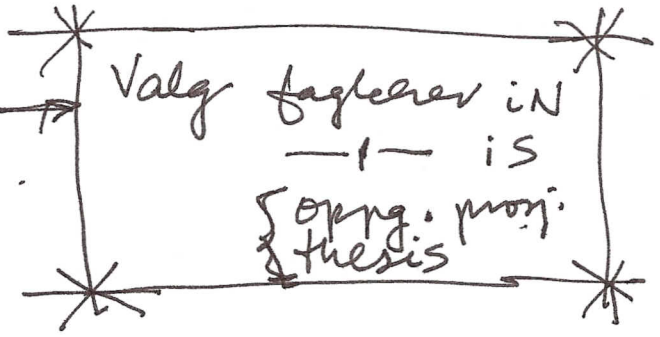 Valg faglærer iN
—〃— iS
{ oppg. prosj.
{ thesis